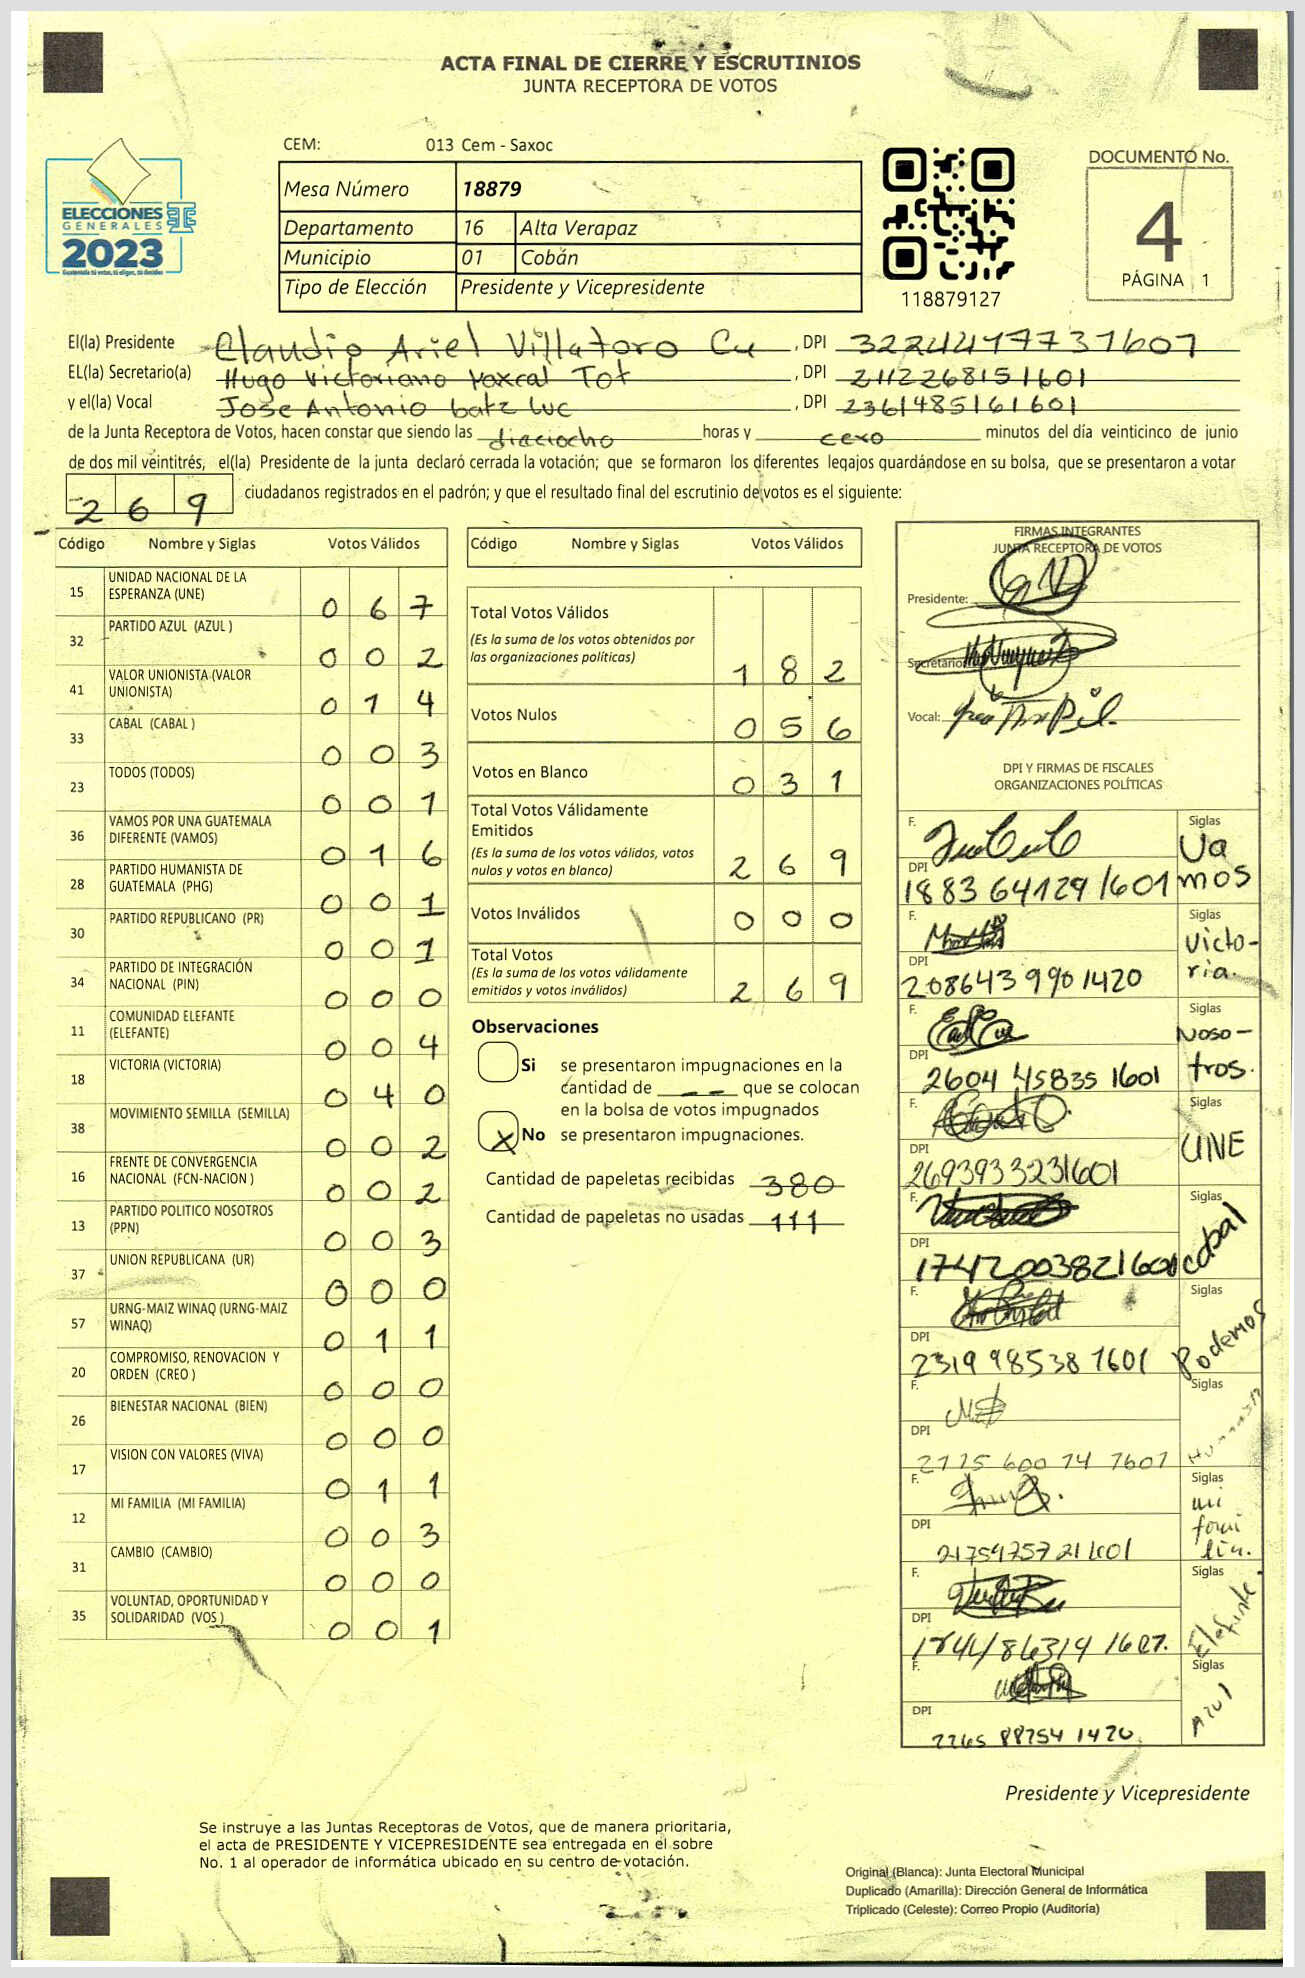 ACTA FINAL DE CIERRE Y ESCRUTINIOS
JUNTA RECEPTORA DE VOTOS
CEM: 013 Cem - Saxoc
Mesa Número 18879
Departamento 16 Alta Verapaz
Municipio 01 Cobán
Tipo de Elección Presidente y Vicepresidente
ELECCIONES
GENERALES
2023
Guatemala tú votas, tú eliges, tú decides
118879127
DOCUMENTO No.
4
PÁGINA 1
El(la) Presidente Claudio Ariel Villatoro Cu, DPI 3224447731607
EL(la) Secretario(a) Hugo Victoriano Yaxcal Tot, DPI 2112268151601
y el(la) Vocal Jose Antonio batz luc, DPI 2361485161601
de la Junta Receptora de Votos, hacen constar que siendo las diaciocho horas y cero minutos del día veinticinco de junio
de dos mil veintitrés, el(la) Presidente de la junta declaró cerrada la votación; que se formaron los diferentes legajos guardándose en su bolsa, que se presentaron a votar
269 ciudadanos registrados en el padrón; y que el resultado final del escrutinio de votos es el siguiente:
Código Nombre y Siglas Votos Válidos
15 UNIDAD NACIONAL DE LA ESPERANZA (UNE) 067
32 PARTIDO AZUL (AZUL ) 002
41 VALOR UNIONISTA (VALOR UNIONISTA) 014
33 CABAL (CABAL ) 003
23 TODOS (TODOS) 001
36 VAMOS POR UNA GUATEMALA DIFERENTE (VAMOS) 016
28 PARTIDO HUMANISTA DE GUATEMALA (PHG) 001
30 PARTIDO REPUBLICANO (PR) 001
34 PARTIDO DE INTEGRACIÓN NACIONAL (PIN) 000
11 COMUNIDAD ELEFANTE (ELEFANTE) 004
18 VICTORIA (VICTORIA) 040
38 MOVIMIENTO SEMILLA (SEMILLA) 002
16 FRENTE DE CONVERGENCIA NACIONAL (FCN-NACION ) 002
13 PARTIDO POLITICO NOSOTROS (PPN) 003
37 UNION REPUBLICANA (UR) 000
57 URNG-MAIZ WINAQ (URNG-MAIZ WINAQ) 011
20 COMPROMISO, RENOVACION Y ORDEN (CREO ) 000
26 BIENESTAR NACIONAL (BIEN) 000
17 VISION CON VALORES (VIVA) 011
12 MI FAMILIA (MI FAMILIA) 003
31 CAMBIO (CAMBIO) 000
35 VOLUNTAD, OPORTUNIDAD Y SOLIDARIDAD (VOS ) 001
Código Nombre y Siglas Votos Válidos
Total Votos Válidos 182
(Es la suma de los votos obtenidos por
las organizaciones políticas)
Votos Nulos 056
Votos en Blanco 031
Total Votos Válidamente
Emitidos 269
(Es la suma de los votos válidos, votos
nulos y votos en blanco)
Votos Inválidos 000
Total Votos 269
(Es la suma de los votos válidamente
emitidos y votos inválidos)
Observaciones
Si se presentaron impugnaciones en la
cantidad de -- que se colocan
en la bolsa de votos impugnados
X No se presentaron impugnaciones.
Cantidad de papeletas recibidas 380
Cantidad de papeletas no usadas 111
FIRMAS INTEGRANTES
JUNTA RECEPTORA DE VOTOS
Presidente:
Secretario:
Vocal:
DPI Y FIRMAS DE FISCALES
ORGANIZACIONES POLÍTICAS
F. Siglas Vamos
DPI 1883 64129 1601
F. Siglas Victoria.
DPI 208643 990 1420
F. Siglas Nosotros.
DPI 2604 45835 1601
F. Siglas UNE
DPI 2693933231601
F. Siglas cabal
DPI 1742003821601
F. Siglas Podemos
DPI 2319 98538 1601
F. Siglas
DPI 2125 600 74 1601
F. Siglas mi familia.
DPI
F. Siglas Elefante
DPI
F. Siglas Azul
DPI
Presidente y Vicepresidente
Se instruye a las Juntas Receptoras de Votos, que de manera prioritaria,
el acta de PRESIDENTE Y VICEPRESIDENTE sea entregada en el sobre
No. 1 al operador de informática ubicado en su centro de votación.
Original (Blanca): Junta Electoral Municipal
Duplicado (Amarilla): Dirección General de Informática
Triplicado (Celeste): Correo Propio (Auditoría)